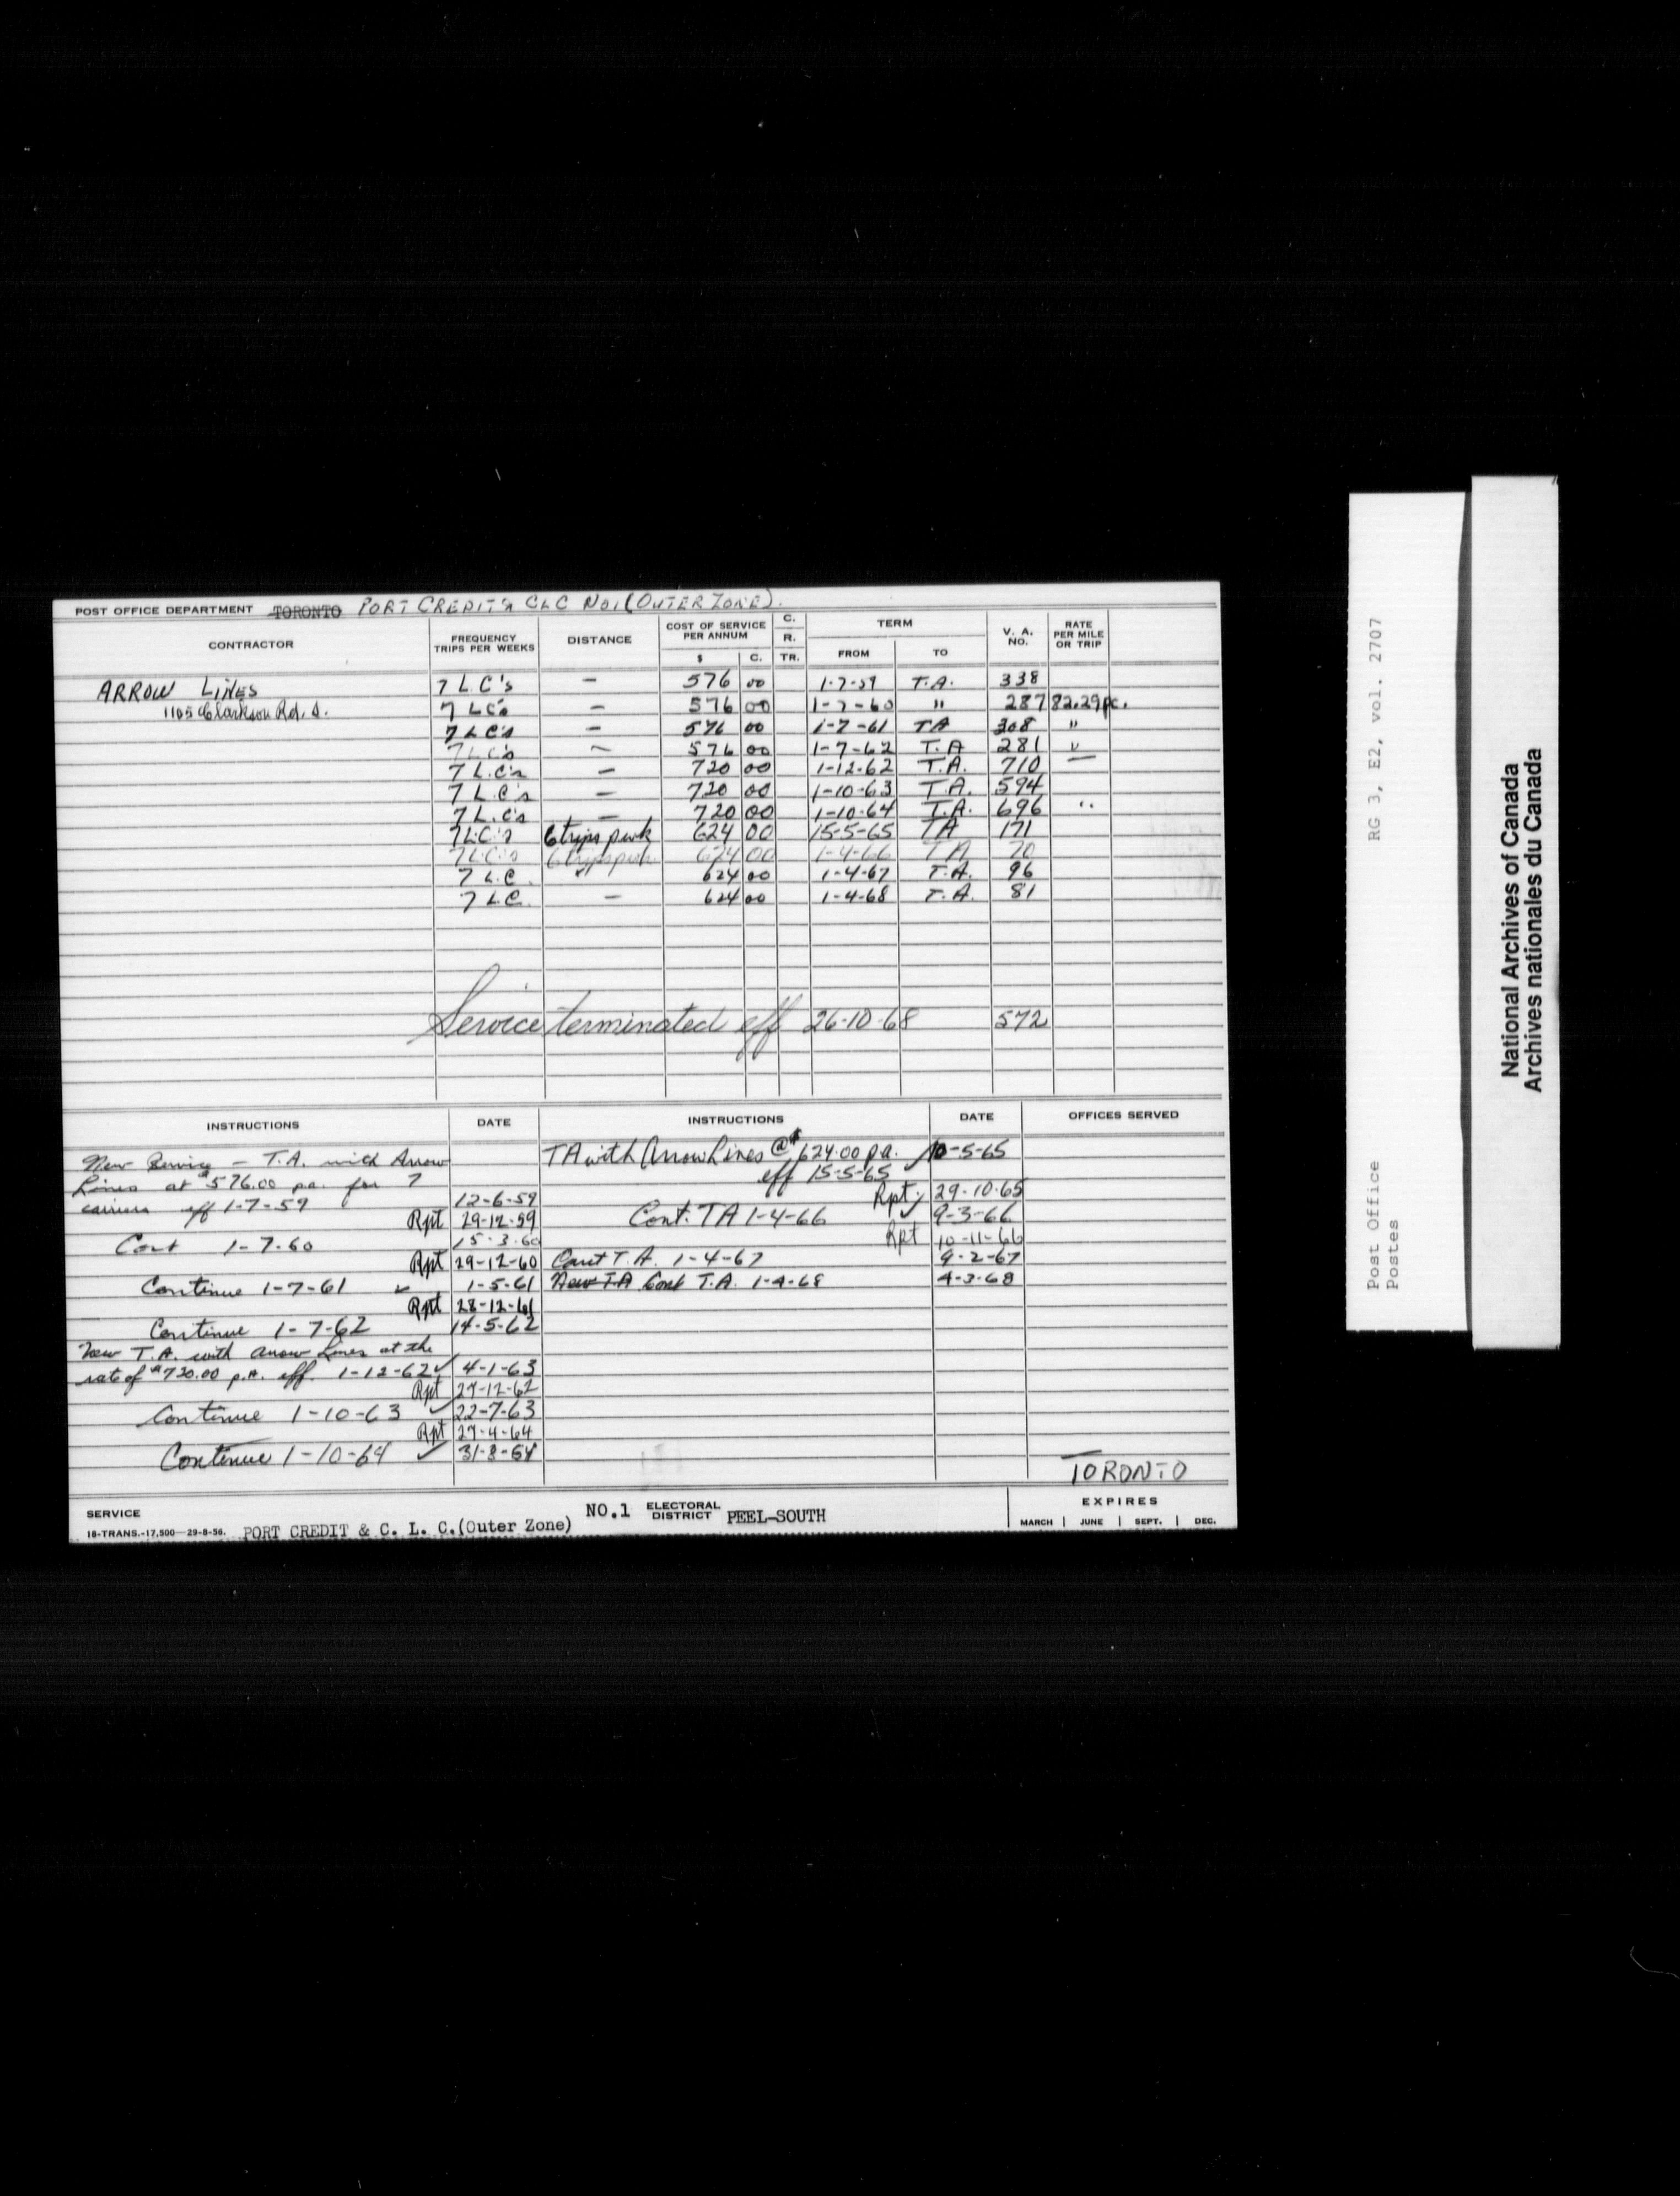 POST OFFICE DEPARTMENT TORONTO PORT CREDIT & CLC NO1 (OUTER ZONE).
CONTRACTOR FREQUENCY TRIPS PER WEEKS DISTANCE COST OF SERVICE PER ANNUM $ C. C. R. TR. TERM FROM TO V. A. NO. RATE PER MILE OR TRIP
ARROW LINES 7 L.C's — 576 00 1-7-59 T.A. 338
1105 Clarkson Rd. S. 7 LC's — 576 00 1-7-60 " 287 82.29 pc.
7 LC's — 576 00 1-7-61 TA 308 "
7 LC's — 576 00 1-7-62 T.A 281 "
7 L.C's — 720 00 1-12-62 T.A. 710 —
7 L.C's — 720 00 1-10-63 T.A. 594
7 L.C's — 720 00 1-10-64 T.A. 696 "
7 LC's 6 trips p wk 624 00 15-5-65 TA 171
7 LC's 6 trips p wk 624 00 1-4-66 TA 70
7 L.C. " 624 00 1-4-67 T.A. 96
7 L.C. — 624 00 1-4-68 T.A. 81
Service terminated eff 26-10-68 572
INSTRUCTIONS DATE INSTRUCTIONS DATE OFFICES SERVED
New Service — T.A. with Arrow
Lines at $576.00 pa. for 7
carriers eff 1-7-59 12-6-59
Rpt 29-12-59
Cont 1-7-60 15-3-60
Rpt 29-12-60
Continue 1-7-61 ✓ 1-5-61
Rpt 28-12-61
Continue 1-7-62 14-5-62
New T.A. with Arrow Lines at the
rate of $720.00 p.a. eff. 1-12-62 ✓ 4-1-63
Rpt 27-12-62
Continue 1-10-63 ✓ 22-7-63
Rpt 27-4-64
Continue 1-10-64 ✓ 31-8-64
TA with Arrow Lines @ $624.00 pa. ✓ 10-5-65
eff 15-5-65
Rpt 29-10-65
Cont. TA 1-4-66 ✓ 9-3-66
Rpt 10-11-66
Cont T.A. 1-4-67 9-2-67
New TA Cont T.A. 1-4-68 4-3-68
TORONTO
SERVICE PORT CREDIT & C. L. C.(Outer Zone) NO.1 ELECTORAL DISTRICT PEEL-SOUTH
EXPIRES
MARCH | JUNE | SEPT. | DEC.
18-TRANS.-17,500—29-8-56.
RG 3, E2, vol. 2707
Post Office
Postes
National Archives of Canada
Archives nationales du Canada